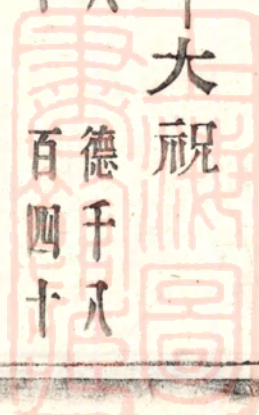 大祝
德千八
百四十